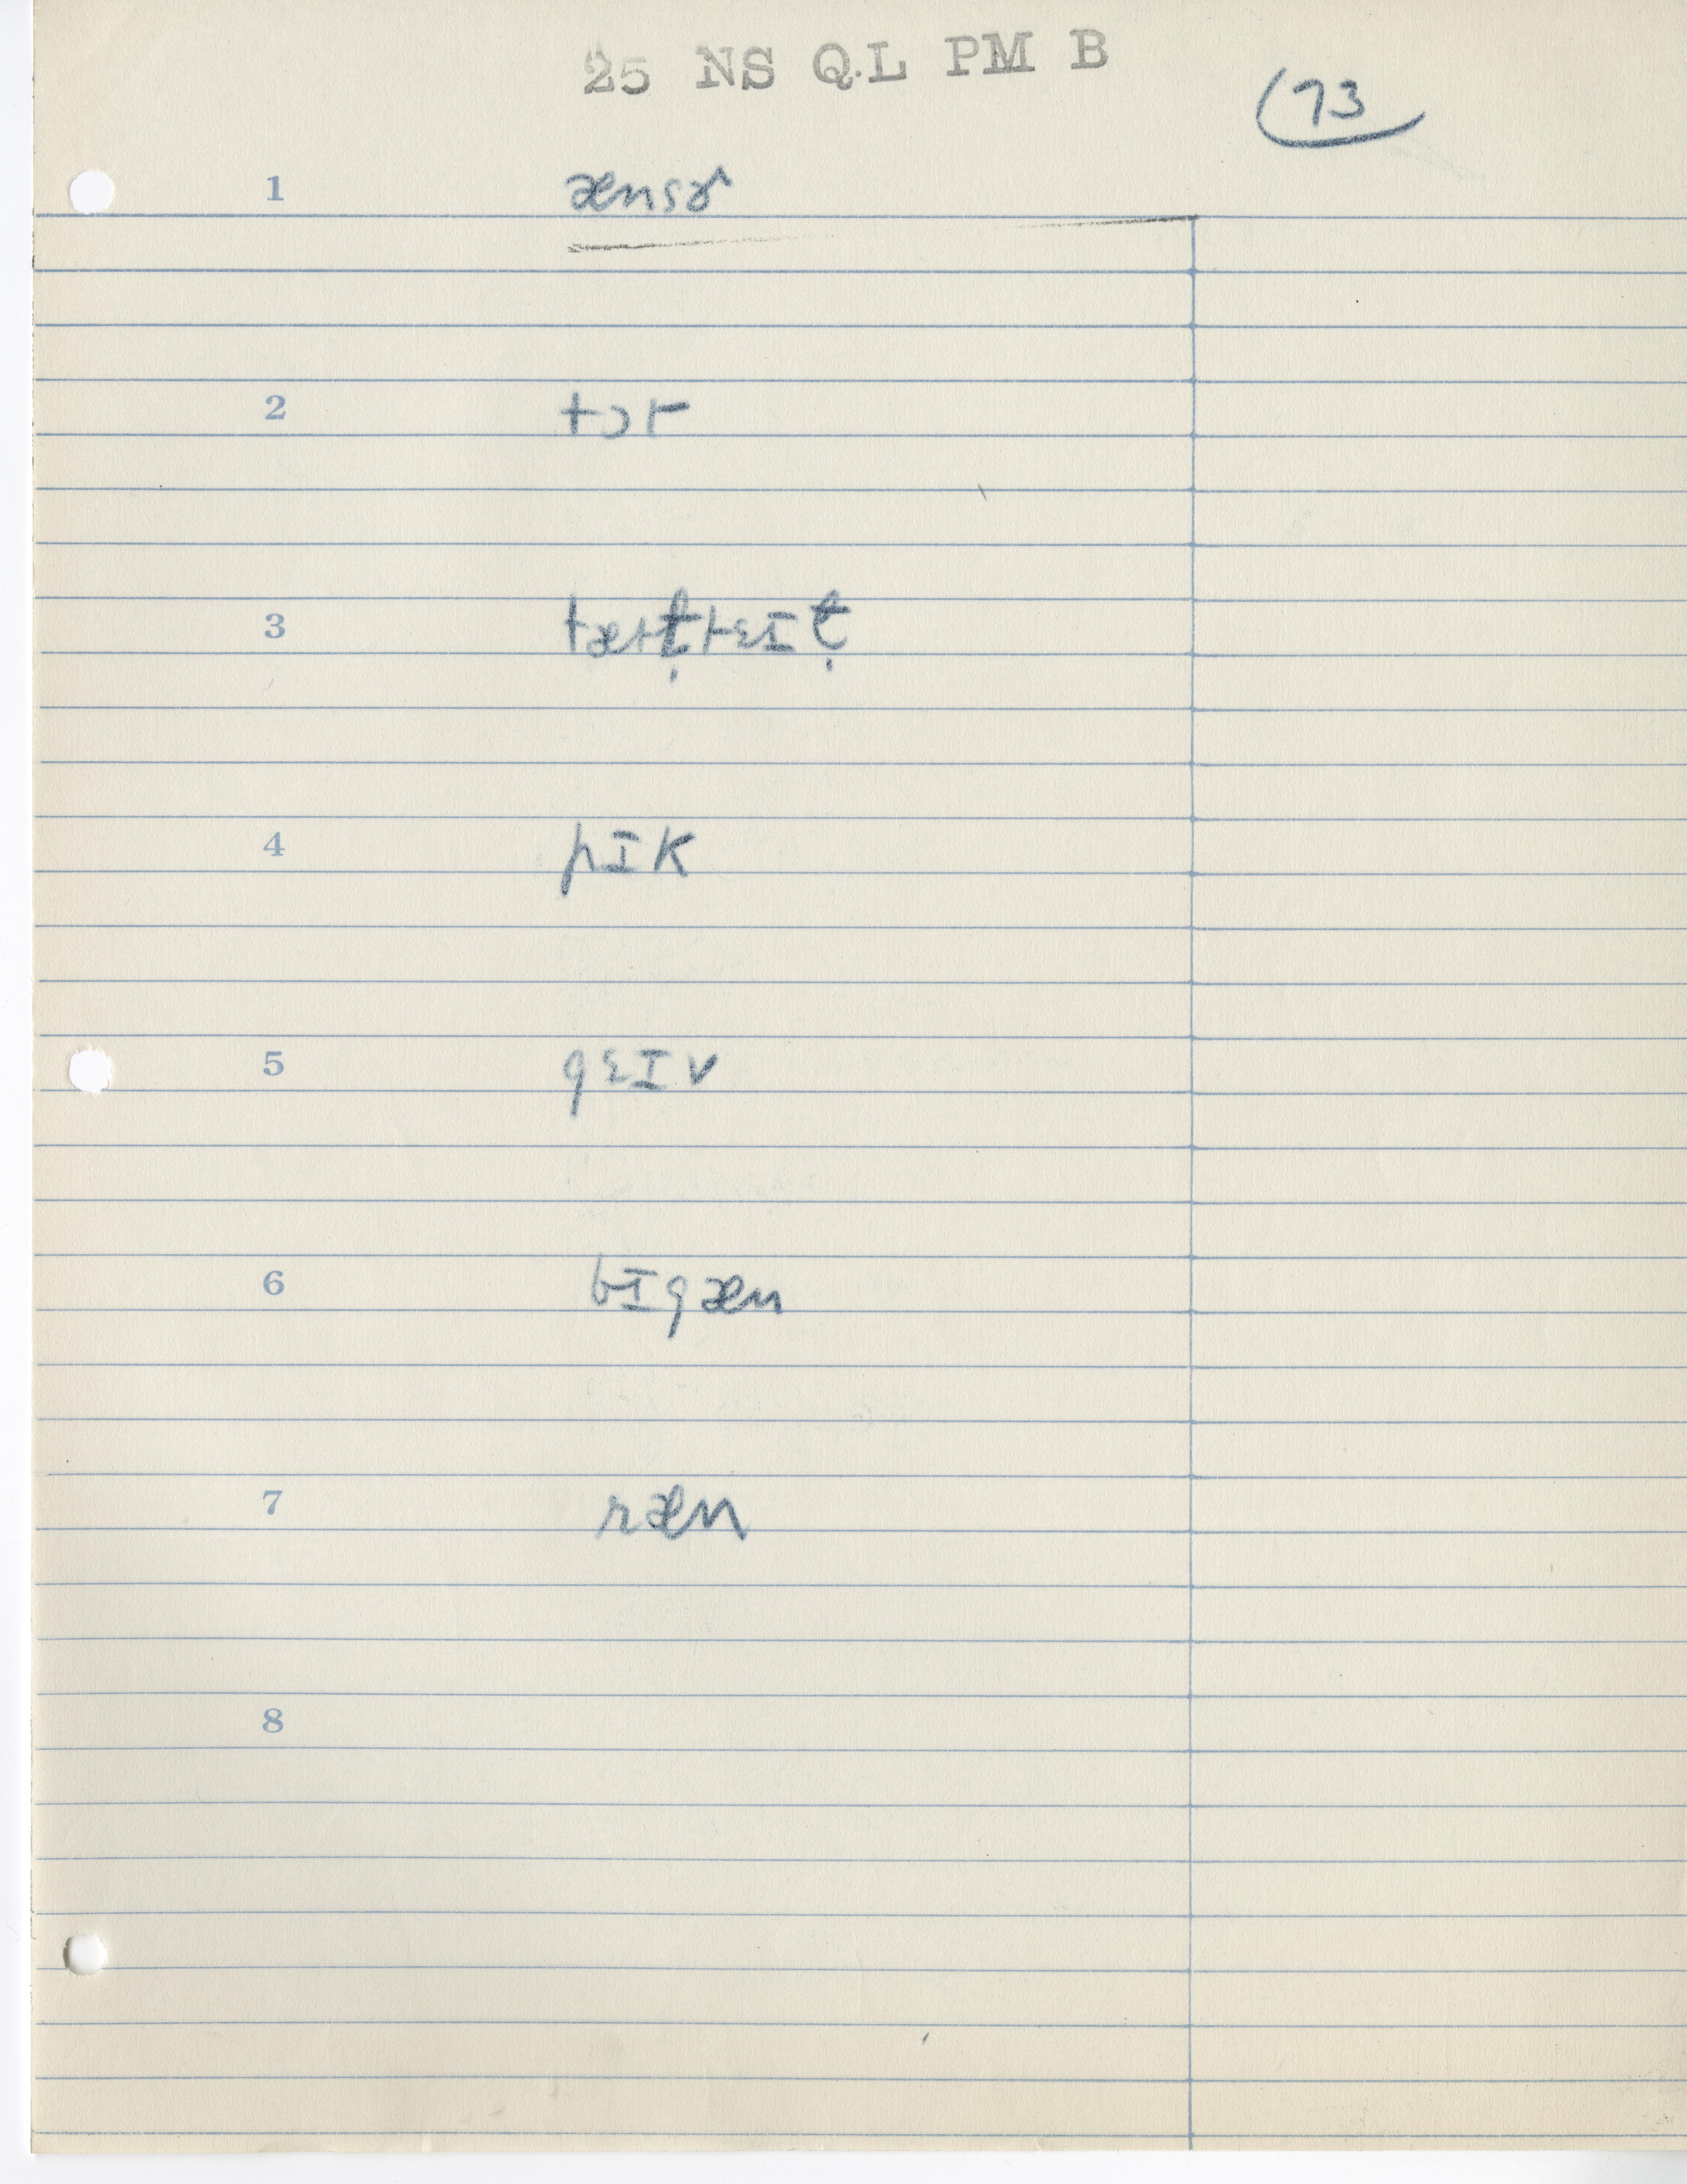 25 NS QL PM B
73
1 ænsɚ
2 tɔr
3
4 pɪk
5 gɛɪv
6 bɪgæn
7 ræn
8